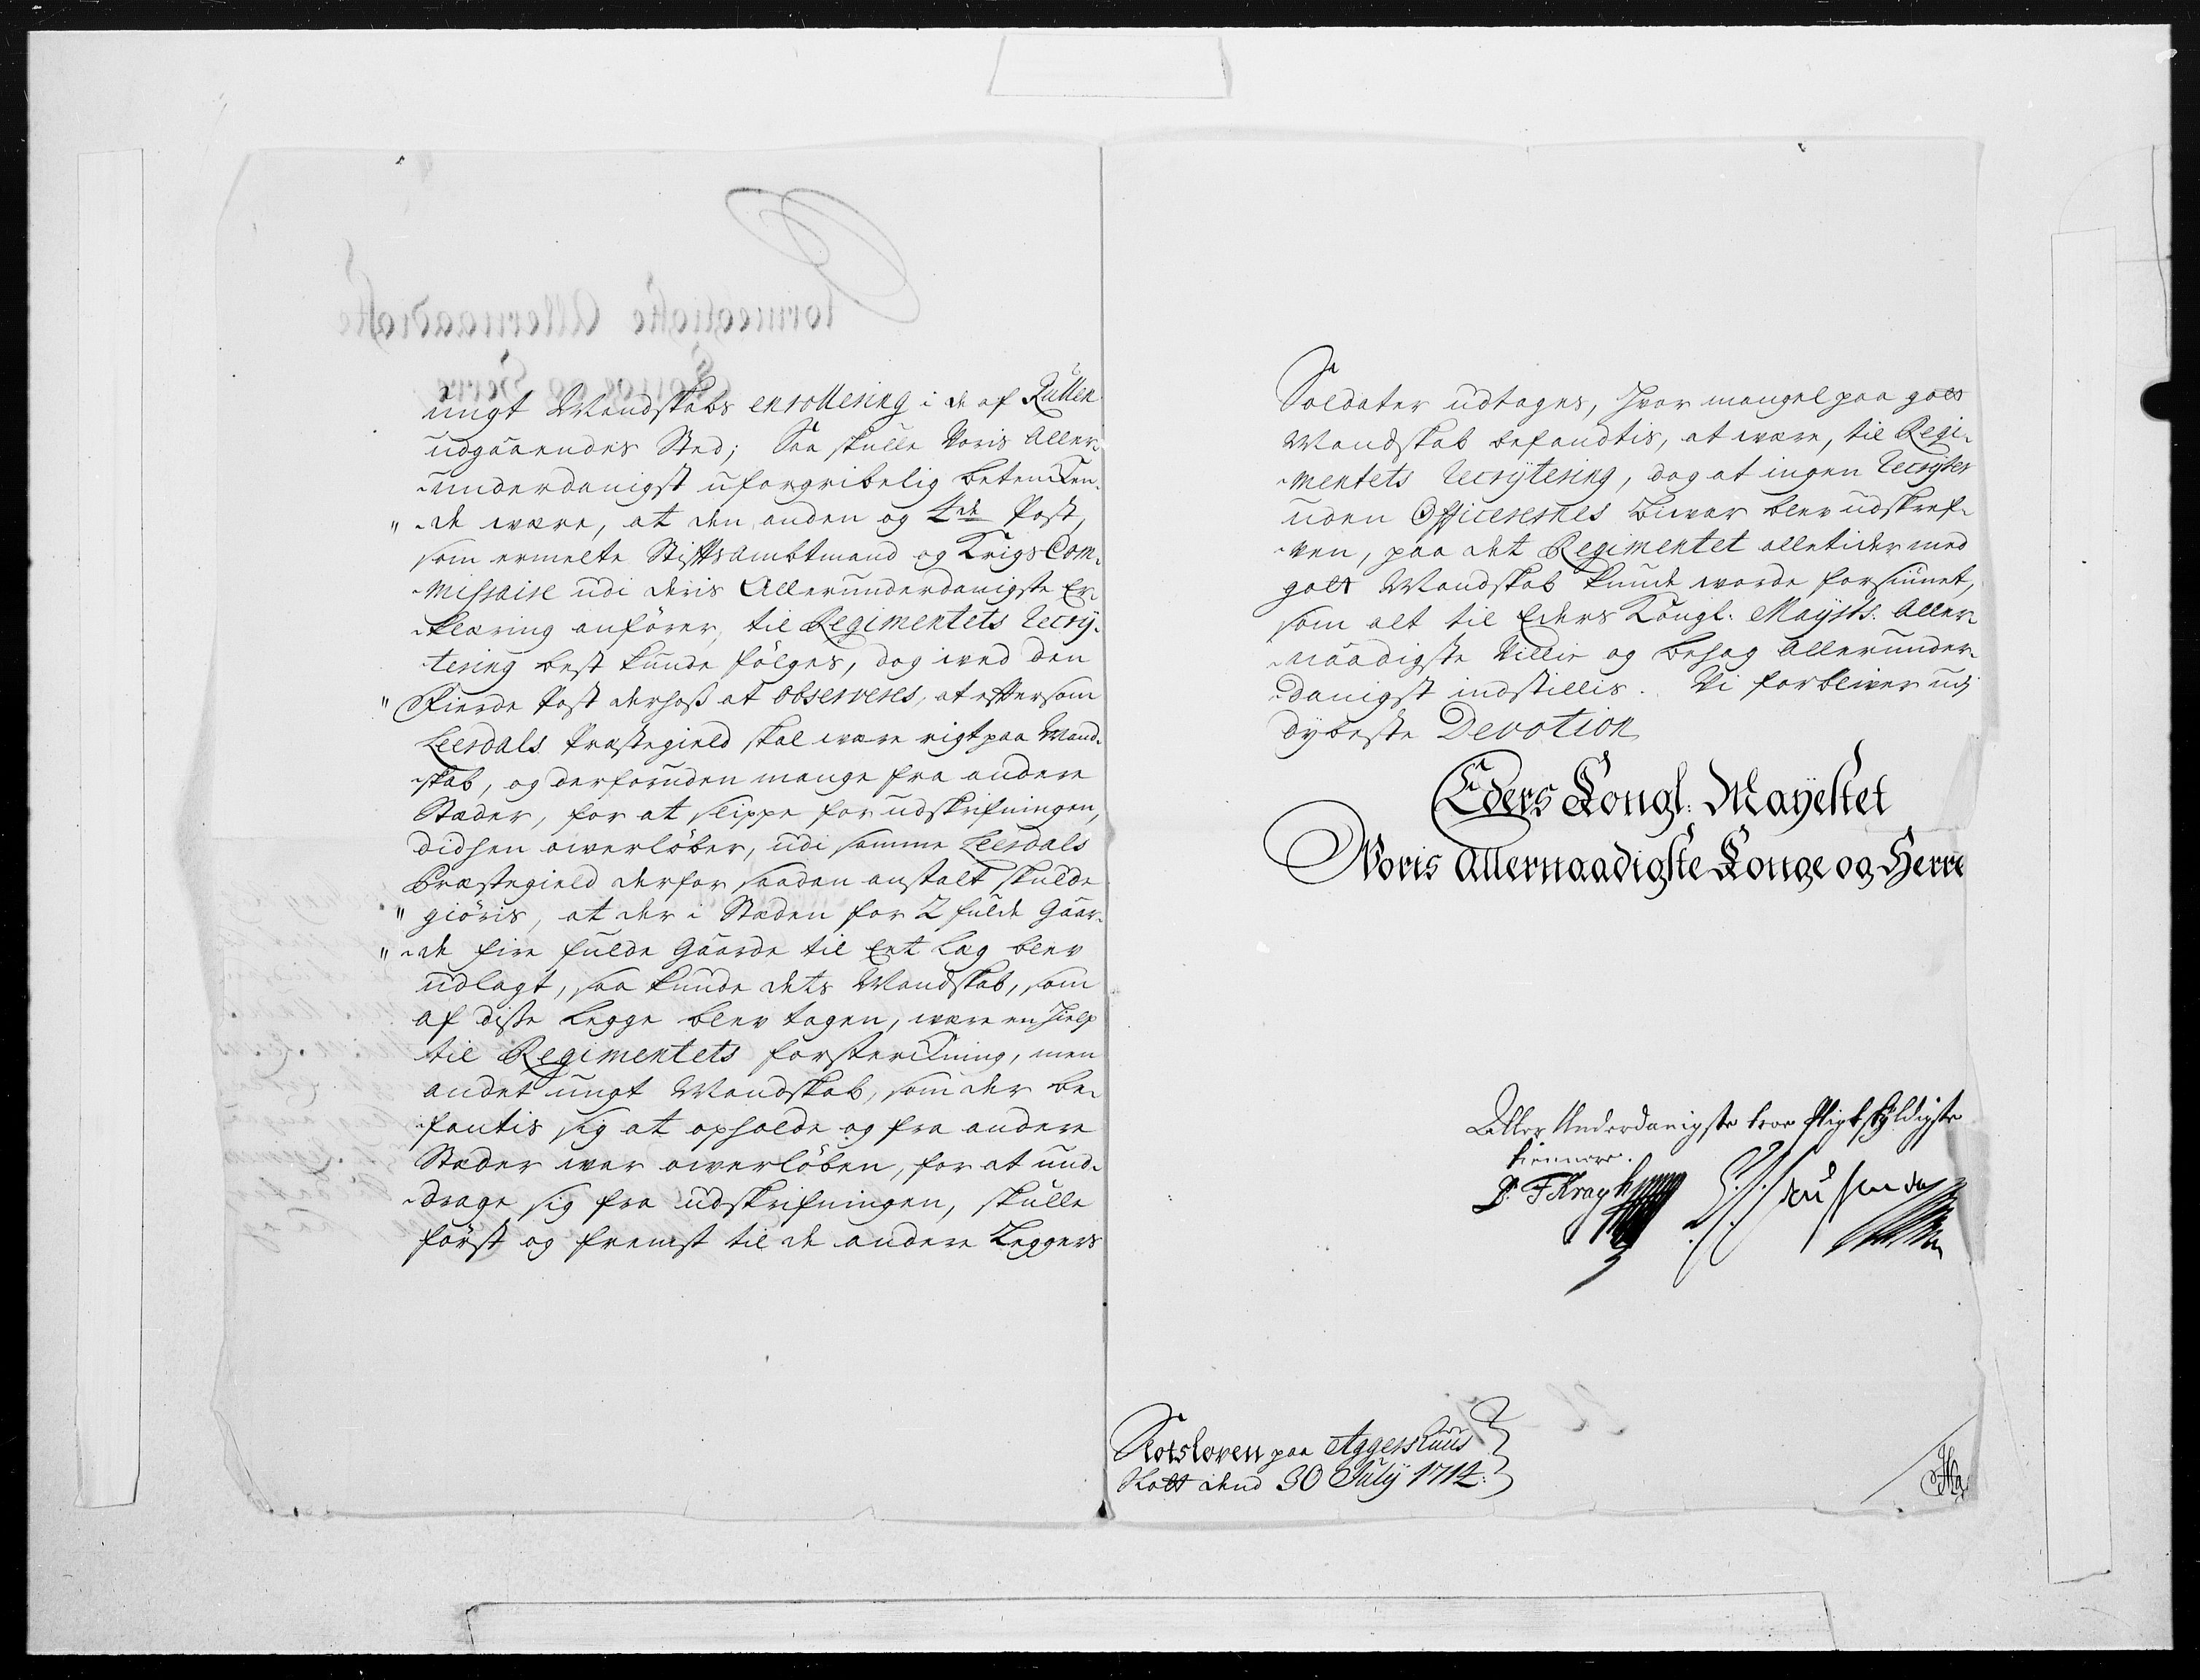 ungt Mandskabs enrollering i de af Rullen
udgaaendes Sted; Saa skulle Voris Aller-
-underdanigst uforgribelig betencken-
" -de være, at den anden og 4de Post,
som ermelte Stiftsambtmand og Krigs Com-
-missaire udi deris Allerunderdanigste Er-
-klæring anfører, til Regimentets Recry-
-tering best kunde følges, dog ved den
" Fierde Post derhoß at observeres, at eftersom
Leerdals Præstegield skal være rigt paa Mand-
-skab, og derforuden mange fra andere
Stæder, for at slippe for udskrifningen,
didhen overløber, udi samme Leerdals
Præstegield derfor saadan anstalt skulde
" giøris, at der i Steden for 2 fulde Gaar-
" -de fire fulde Gaarde til Eet Læg blev
udlagt, saa kunde dets Mandskab, som
af diße Legge blev tagen, være en hielp
til Regimentets forsterckning, men
andet ungt Mandskab, som der be-
-fantis sig at opholde og fra andere
Stæder var overløben, for at und-
-drage sig fra udskrifningen, skulle
først og fremst til de andere Leggers
Soldater udtages, hvor mangel paa got
Mandskab befandtis, at være, til Regi-
-mentets Recrytering, dog at ingen Recryter
uden Officerernes Bivær blev udskref-
-ven, paa det Regimentet alletider med
got Mandskab kunde vorde forsiunet,
som alt til Eders Kongl. Mayts. Aller-
-naadigste Villie og behag Allerunder-
-danigst indstillis. Vi forbliver udj
dybeste Devotion
Eders Kongl. Mayestet
Voris Allernaadigste Konge og Herre
Aller Underdanigste troe Pligtskyldigste
tiennere.
F Kragh
Slotsloven paa Aggershuus
Slott dend 30 July 1714.